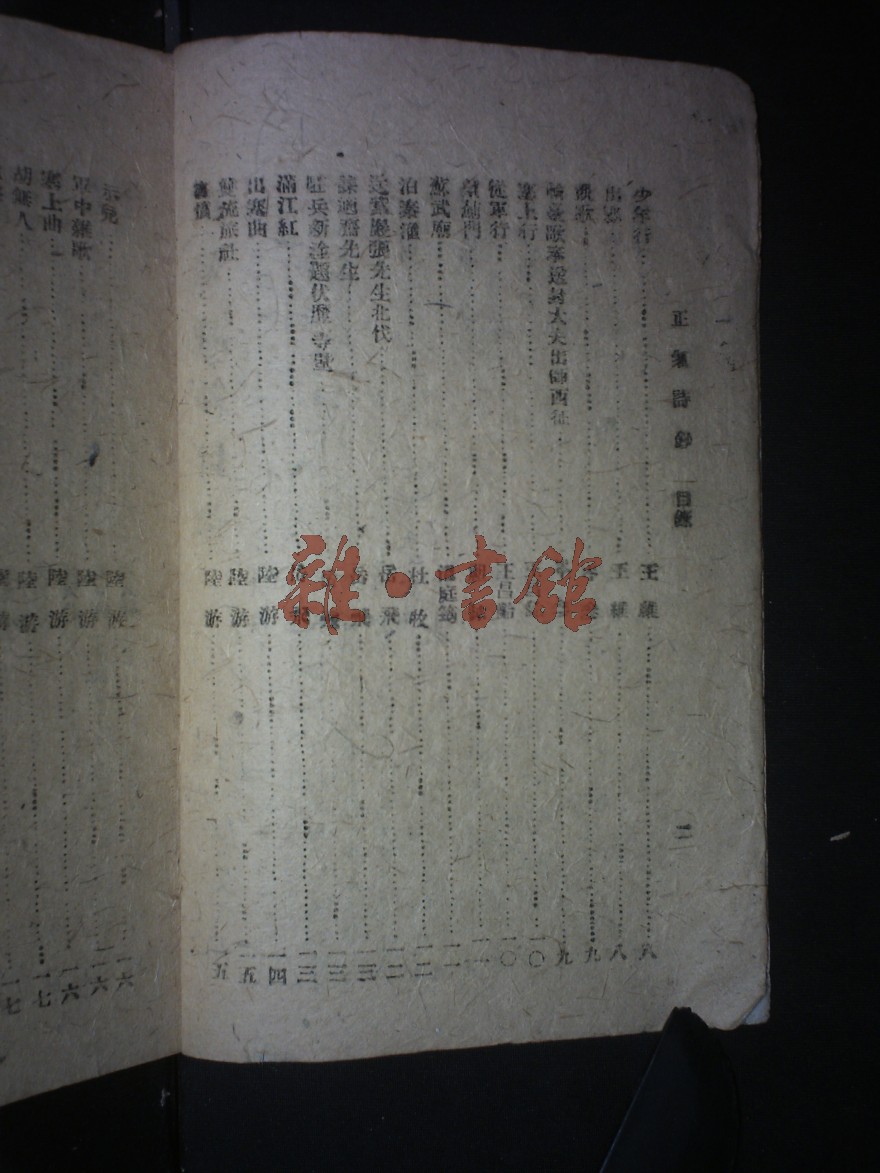 正氣詩鈔 目錄
二
少年行 王維 八
出塞 王維 八
九
輪臺歌奉送封大夫出師西征 九
塞上行 一〇
從軍行 王昌齡 一〇
劍門 一一
蘇武廟 溫庭筠 一一
泊秦淮 杜牧 一二
送紫巖張先生北伐 岳飛 一二
岳飛 一三
駐兵新淦題伏魔寺壁 一三
滿江紅 岳飛 一三
出塞曲 陸游 一四
雙流旅社 陸游 一五
書憤 陸游 一五
示兒 陸游 一六
軍中雜歌 陸游 一六
塞上曲 陸游 一六
胡無人 陸游 一七
一七
雜·書館